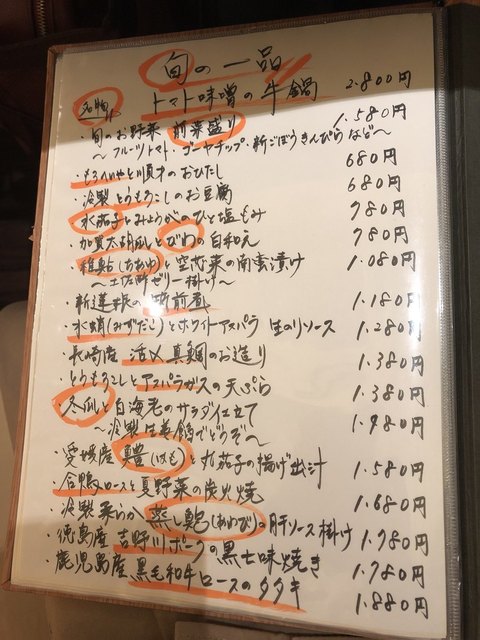 旬の一品
名物 トマト味噌の牛鍋 2.800円
・旬のお野菜 前菜盛り 1.580円
〜フルーツトマト・ゴーヤチップ・新ごぼうきんぴらなど〜
・もろへいやと順才のおひたし 680円
・冷製とうもろこしのお豆腐 680円
・水茄子とみょうがのひと塩もみ 780円
・加賀太胡瓜とびわの白和え 780円
・稚鮎(ちあゆ)と空芯菜の南蛮漬け 1.080円
〜土佐酢ゼリー掛け〜
・新蓮根の 1.180円
・水蛸(みずだこ)とホワイトアスパラ 生のりソース 1.280円
・長崎産 活〆真鯛のお造り 1.380円
・とうもろこしとアスパラガスの天ぷら 1.380円
・冬瓜と白海老のサラダ仕立て 1.980円
〜冷製でどうぞ〜
・愛媛産 鱧(はも)と丸茄子の揚げ出汁 1.580円
・合鴨ロースと夏野菜の炭火焼 1.680円
・冷製柔らか蒸し鮑(あわび)の肝ソース掛け 1.980円
・徳島産 吉野川ポークの黒七味焼き 1.780円
・鹿児島産 黒毛和牛ロースのタタキ 1.880円